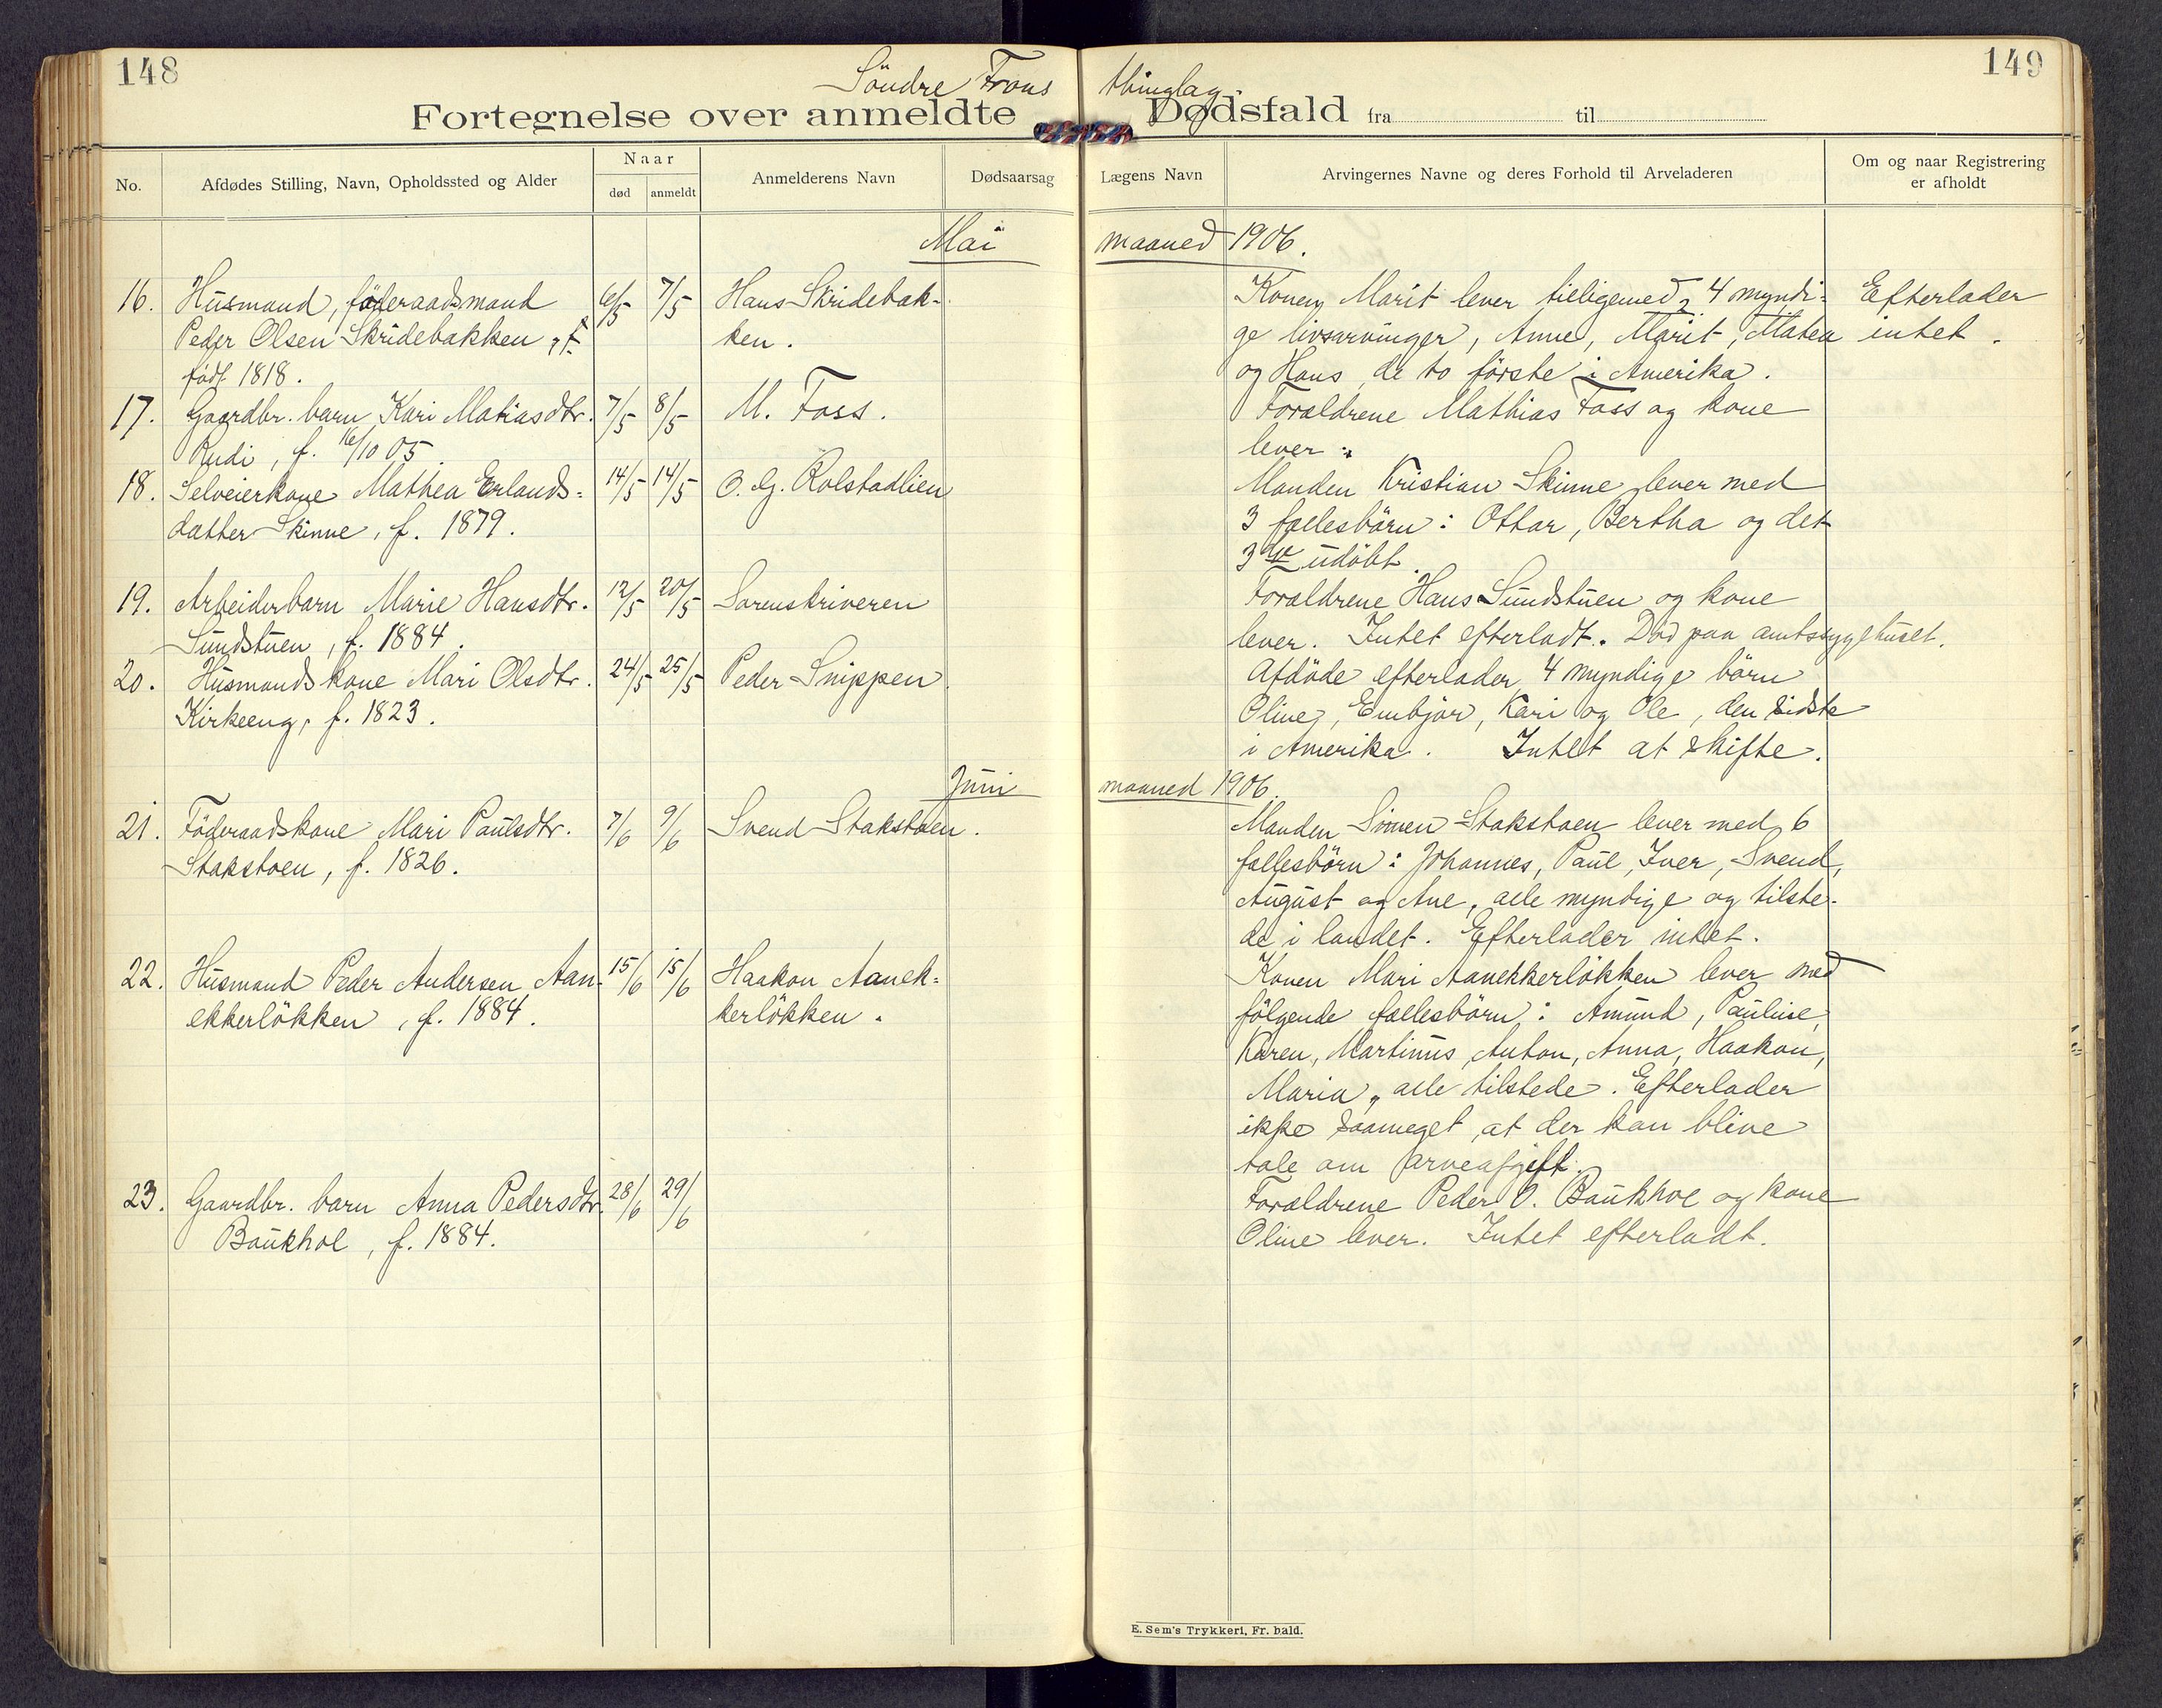 148
149
Söndre Frons thinglag.
Fortegnelse over anmeldte Dødsfald fra til
No.
Afdødes Stilling, Navn, Opholdssted og Alder
Naar
død
anmeldt
Anmelderens Navn
Dødsaarsag
Lægens Navn
Arvingernes Navne og deres Forhold til Arveladeren
Om og naar Registrering
er afholdt
Mai maaned 1906.
16. Husmand, föderaadsmand 6/5 7/5 Hans Skridebak-
Peder Olsen Skridebakken, f.
ken.
født 1818.
Konen Marit lever tilligemed 4 myndi-
ge livsarvinger, Anne, Marit, Mathea
og Hans, de to förste i Amerika.
Efterlader
intet.
17. Gaardbr. barn Kari Matiasdtr. 7/5 8/5 M. Foss.
Rudi, f. 16/10 05.
Forældrene Mathias Foss og kone
lever.
18. Selveierkone Mathea Erlands- 14/5 14/5 O. G. Rolstadlien
datter Skinne, f. 1879.
Manden Kristian Skinne lever med
3 fællesbörn: Ottar, Bertha og det
3die udöbt.
19. Arbeiderbarn Marie Hansdtr. 12/5 20/5 Sorenskriveren
Sundstuen, f. 1884.
Forældrene Hans Sundstuen og kone
lever. Intet efterladt. Död paa amtssygehuset.
20. Husmandskone Mari Olsdtr. 24/5 25/5 Peder Snippen
Kirkeeng, f. 1823.
Afdöde efterlader 4 myndige börn
Oline, Embjör, Kari og Ole, den sidste
i Amerika. Intet at skifte.
Juni maaned 1906.
21. Föderaadskone Mari Paulsdtr. 7/6 9/6 Svend Stakstoen.
Stakstoen, f. 1826.
Manden Simen Stakstoen lever med 6
fællesbörn: Johannes, Paul, Iver, Svend,
August og Ane, alle myndige og tilste-
de i landet. Efterlader intet.
22. Husmand Peder Andersen Aan- 15/6 15/6 Haakon Aanek-
ekkerlökken, f. 1884.
kerlökken.
Konen Mari Aanekkerlökken lever med
fölgende fællesbörn: Amund, Pauline,
Karen, Martinus, Anton, Anna, Haakon,
Maria, alle tilstede. Efterlader
ikke saameget, at der kan blive
tale om arveafgift.
23. Gaardbr. barn Anna Pedersdtr. 28/6 29/6
Baukhol, f. 1884.
Forældrene Peder O. Baukhol og kone
Oline lever. Intet efterladt.
E. Sem's Trykkeri, Fr. hald.